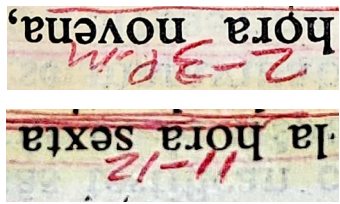 11-12
la hora sexta
2-3 p.m
hora novena,